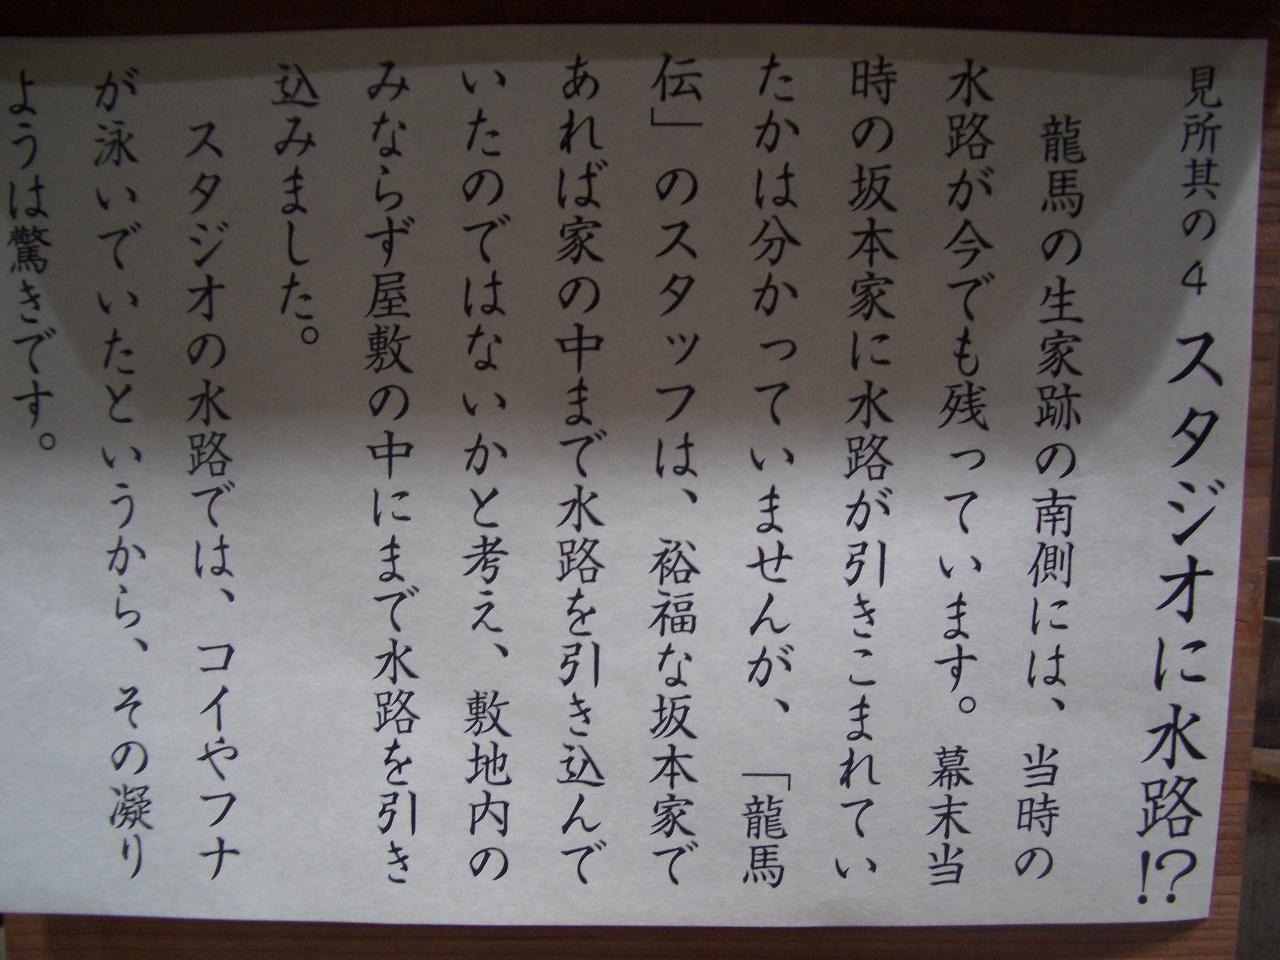 見所其の4 スタジオに水路!?
龍馬の生家跡の南側には、当時の
水路が今でも残っています。幕末当
時の坂本家に水路が引きこまれてい
たかは分かっていませんが、「龍馬
伝」のスタッフは、裕福な坂本家で
あれば家の中まで水路を引き込んで
いたのではないかと考え、敷地内の
みならず屋敷の中にまで水路を引き
込みました。
スタジオの水路では、コイやフナ
が泳いでいたというから、その凝り
ようは驚きです。